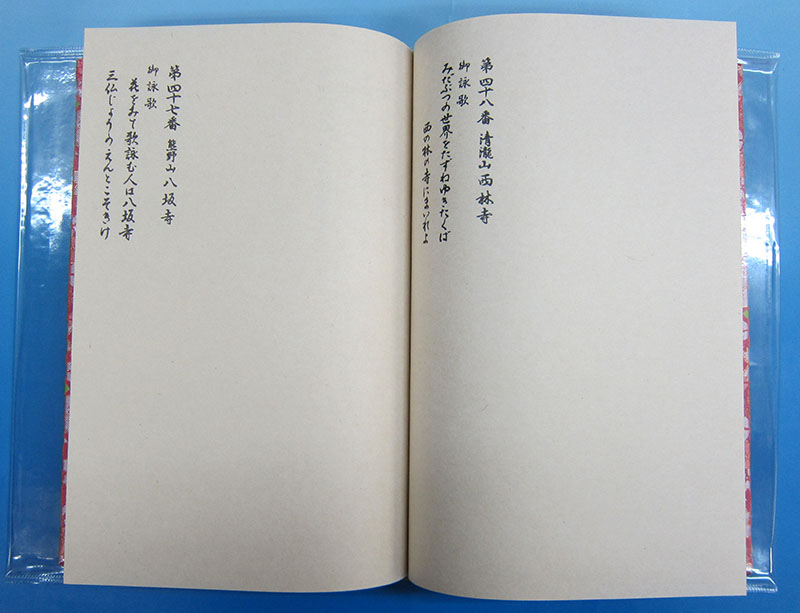 第四十八番 清瀧山 西林寺
御詠歌
みだぶつの世界をたずねゆきたくば
西の林の寺にまいれよ
第四十七番 熊野山 八坂寺
御詠歌
花をみて歌詠む人は八坂寺
三仏じょうのえんとこそきけ